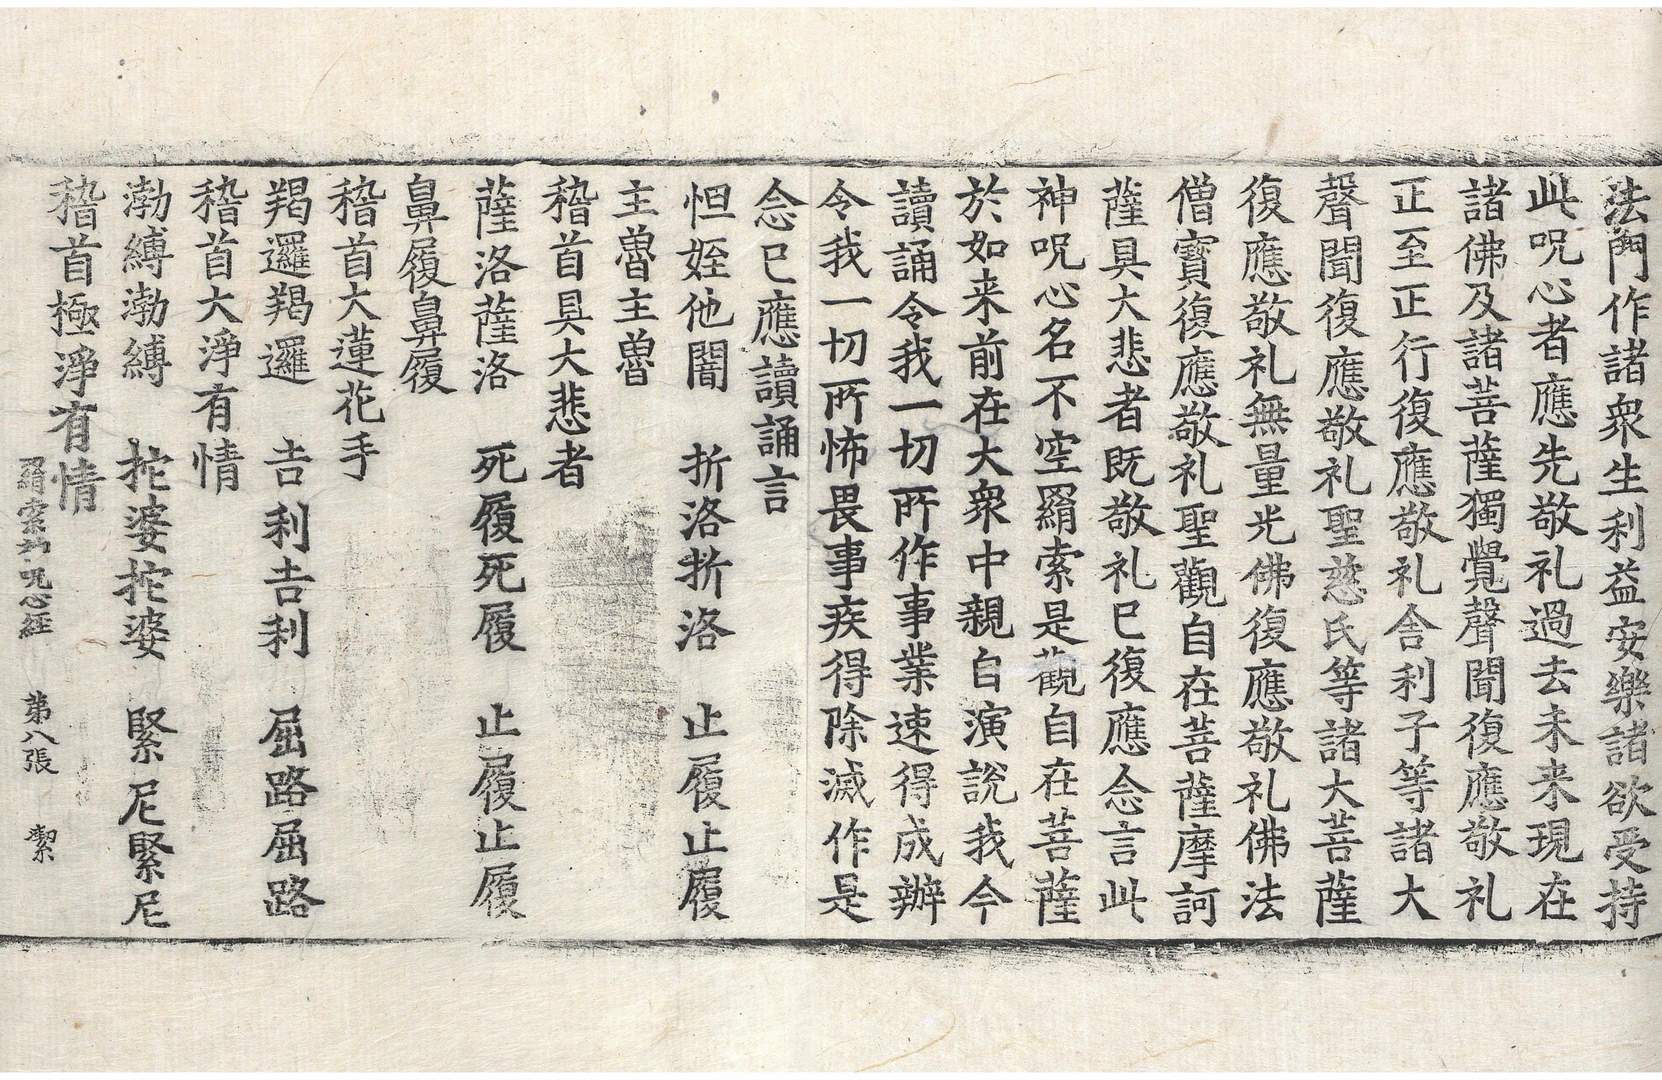 法門作諸衆生利益安樂諸欲受持
此呪心者應先敬礼過去未来現在
諸佛及諸菩薩獨覺聲聞復應敬礼
正至正行復應敬礼舎利子等諸大
聲聞復應敬礼聖慈氏等諸大菩薩
復應敬礼無量光佛復應敬礼佛法
僧寳復應敬礼聖觀自在菩薩摩訶
薩具大悲者既敬礼已復應念言此
神呪心名不空羂索是觀自在菩薩
於如来前在大衆中親自演說我今
讀誦令我一切所作事業速得成辦
令我一切所怖畏事疾得除滅作是
念已應讀誦言
怛姪他闇 折洛折洛 止履止履
主魯主魯
稽首具大悲者
薩洛薩洛 死履死履 止履止履
鼻履鼻履
稽首大蓮花手
羯邏羯邏 吉利吉利 屈路屈路
稽首大淨有情
渤縛渤縛 拕婆拕婆 緊尼緊尼
稽首極淨有情
羂索神呪心経 第八張 㓗